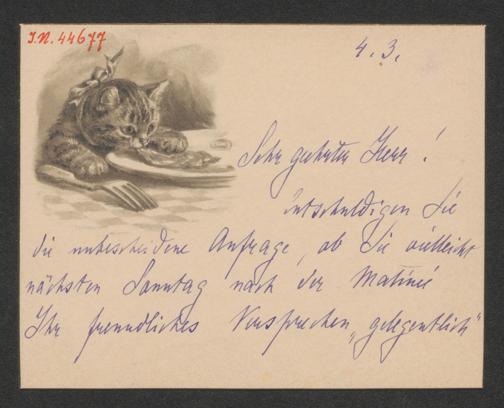 I.N. 44677
4. 3.
Sehr geehrter Herr!
entschuldigen Sie
die unbescheidene Anfrage, ob Sie vielleicht
nächsten Sonntag nach der Matinée
Ihr freundliches Versprechen „gelegentlich"